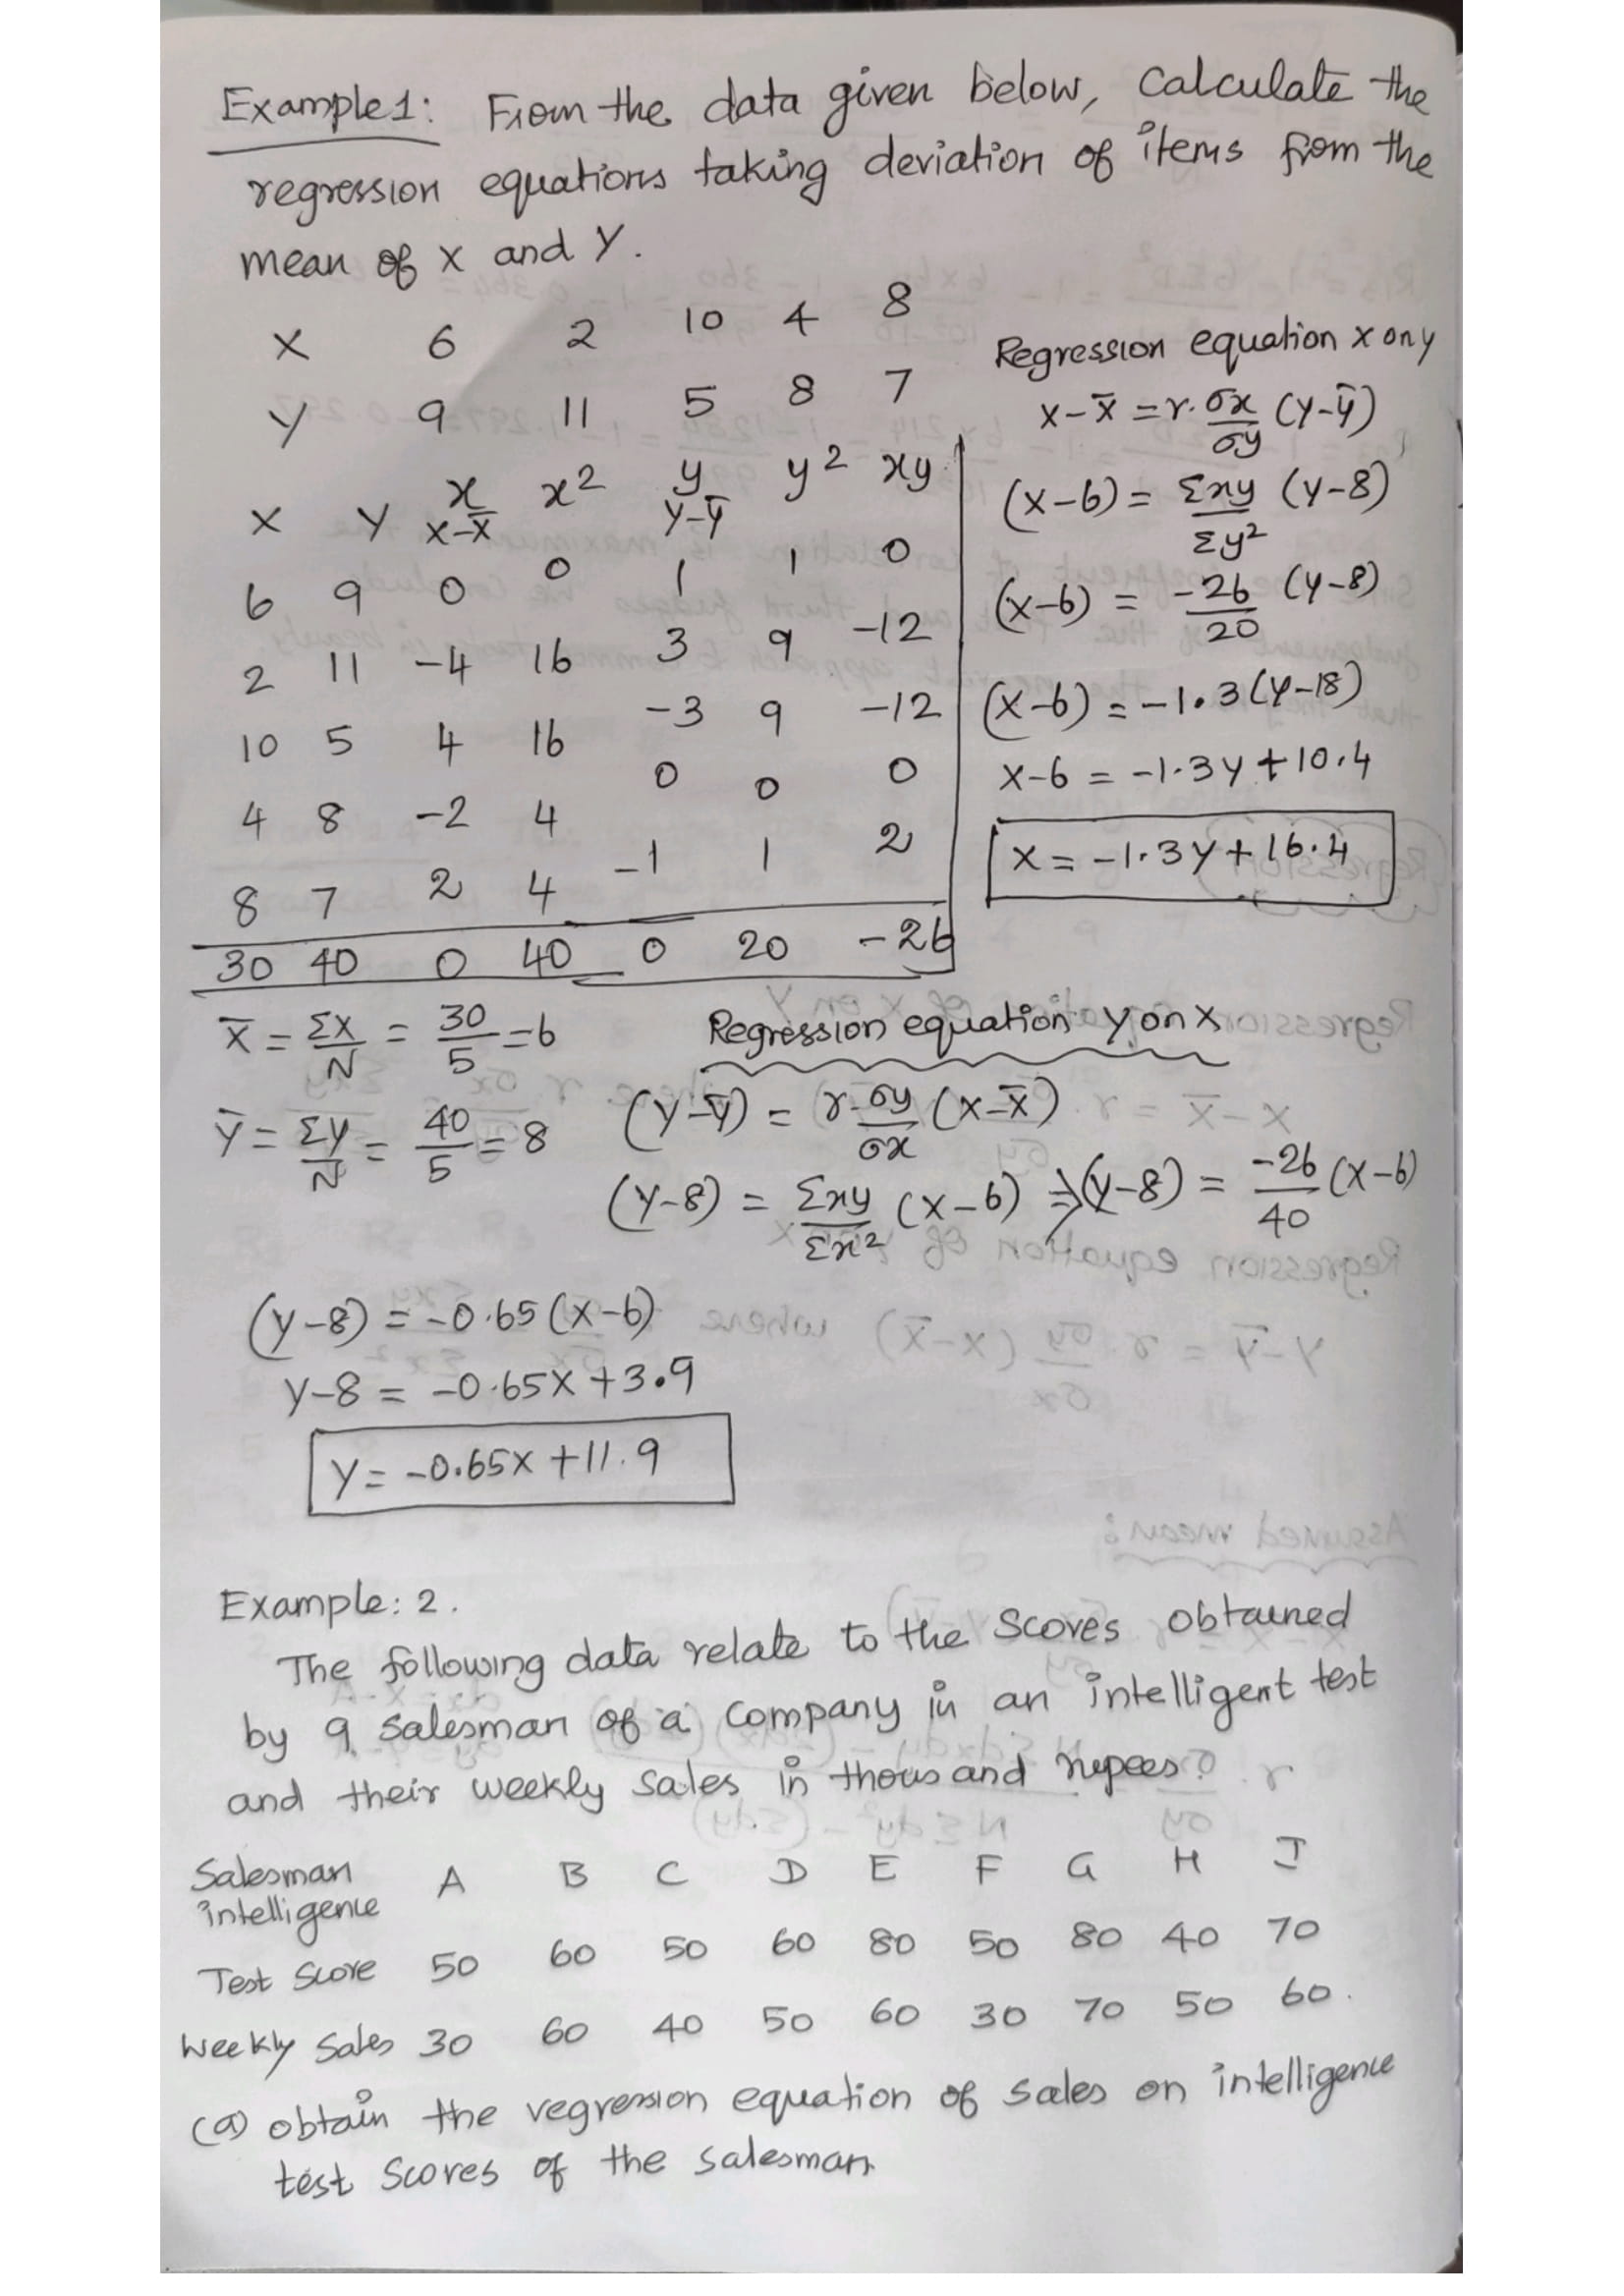 Example 1: From the data given below, Calculate the
regression equations taking deviation of items from the
mean of X and Y.
X 6 2 10 4 8
Y 9 11 5 8 7
X Y x x² y y² xy
X-X̄ Y-Ȳ
6 9 0 0 1 1 0
2 11 -4 16 3 9 -12
10 5 4 16 -3 9 -12
4 8 -2 4 0 0 0
8 7 2 4 -1 1 2
30 40 0 40 0 20 -26
Regression equation X on y
X-X̄ = r. σx/σy (Y-Ȳ)
(X-6) = Σxy/Σy² (Y-8)
(X-6) = -26/20 (Y-8)
(X-6) = -1.3 (Y-18)
X-6 = -1.3Y + 10.4
X = -1.3Y + 16.4
X̄ = ΣX/N = 30/5 = 6
Ȳ = ΣY/N = 40/5 = 8
Regression equation Y on X
(Y-Ȳ) = r. σy/σx (X-X̄)
(Y-8) = Σxy/Σx² (X-6) ⇒ (Y-8) = -26/40 (X-6)
(Y-8) = -0.65 (X-6)
Y-8 = -0.65X + 3.9
Y = -0.65X + 11.9
Example: 2.
The following data relate to the Scores obtained
by 9 Salesman of a Company in an intelligent test
and their weekly Sales in thousand rupees.
Salesman A B C D E F G H I
intelligence
Test Score 50 60 50 60 80 50 80 40 70
Weekly Sales 30 60 40 50 60 30 70 50 60.
(a) obtain the regression equation of Sales on intelligence
test Scores of the Salesman